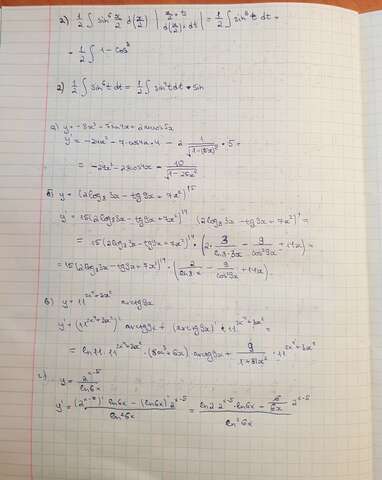 2) 1/2 ∫ sin⁶ x/2 d(x/2) | x/2 = t d(x/2) = dt | = 1/2 ∫ sin⁶ t dt =
= 1/2 ∫ 1 - cos³
2) 1/2 ∫ sin⁶ t dt = 1/2 ∫ sin⁵ t dt * sin
a) y = -8x³ - 7sin4x + 2arccos5x
y' = -24x² - 7·cos4x·4 - 2 1/√(1-(5x)²) · 5 =
= -24x² - 28cos4x - 10/√(1-25x²)
б) y = (2log₈3x - tg9x + 7x²)¹⁵
y' = 15(2log₈3x - tg9x + 7x²)¹⁴ (2log₈3x - tg9x + 7x²)' =
= 15(2log₈3x - tg9x + 7x²)¹⁴ · (2· 3/(ln8·3x) - 9/cos²9x + 14x) =
= 15(2log₈3x - tg9x + 7x²)¹⁴ · (2/(ln8·x) - 9/cos²9x + 14x)
в) y = 11^(2x⁴+3x²) arctg9x
y' = (11^(2x⁴+3x²))' arctg9x + (arctg9x)' 11^(2x⁴+3x²) =
= ln11·11^(2x⁴+3x²) · (8x³+6x) · arctg9x + 9/(1+81x²) · 11^(2x⁴+3x²)
г) y = 2^(x-5)/ln6x
y' = ((2^(x-5))' ln6x - (ln6x)' 2^(x-5))/ln²6x = (ln2·2^(x-5)·ln6x - 6/6x 2^(x-5))/ln²6x